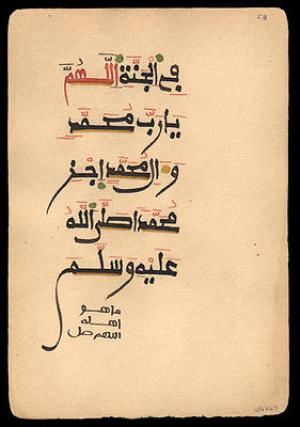 في الجنّة اللّهمّ
يا ربّ محمّد
وال محمّد اجز
محمّدا صلّى اللّه
عليه وسلّم
ما هو
اهله
اللهم صل